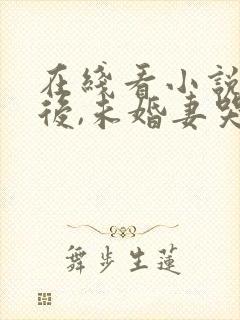 在綫看小説
後,未婚妻哭
舞步生蓮